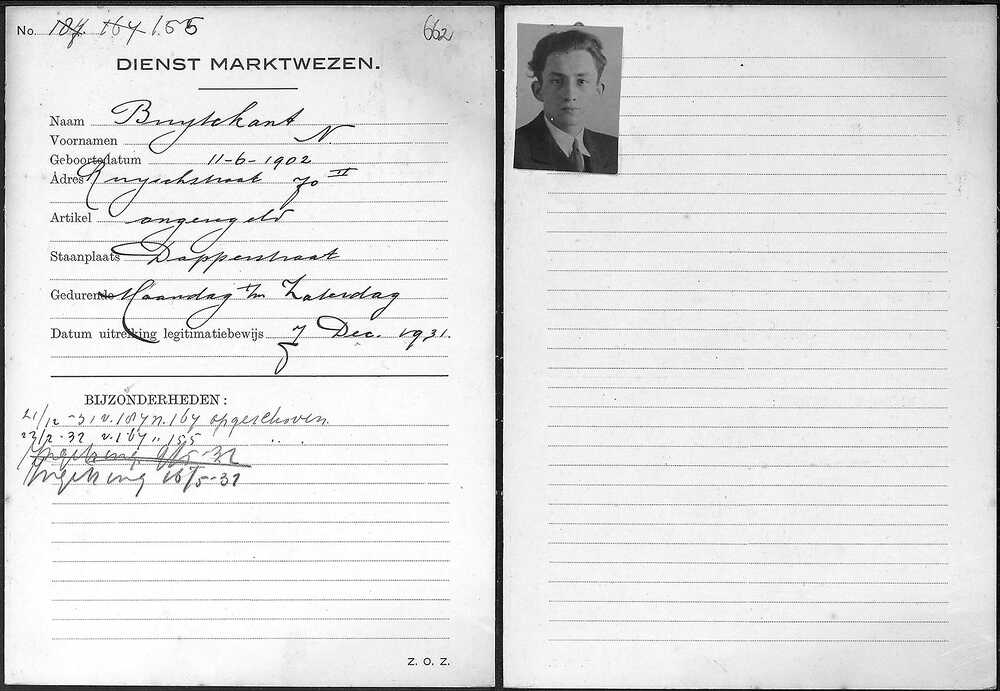 No. 187 167 155
662
DIENST MARKTWEZEN.
Naam Buytekant
Voornamen N.
Geboortedatum 11-6-1902
Adres Ruyschstraat 70 II
Artikel ongeregeld
Staanplaats Dapperstraat
Gedurende Maandag t/m Zaterdag
Datum uitreiking legitimatiebewijs 7 Dec. 1931.
BIJZONDERHEDEN:
21/12-31 v. 187 n. 167 opgeschoven.
22/2-32 v. 167 „ 155 „ „
9/5-32
16/5-32
Z. O. Z.